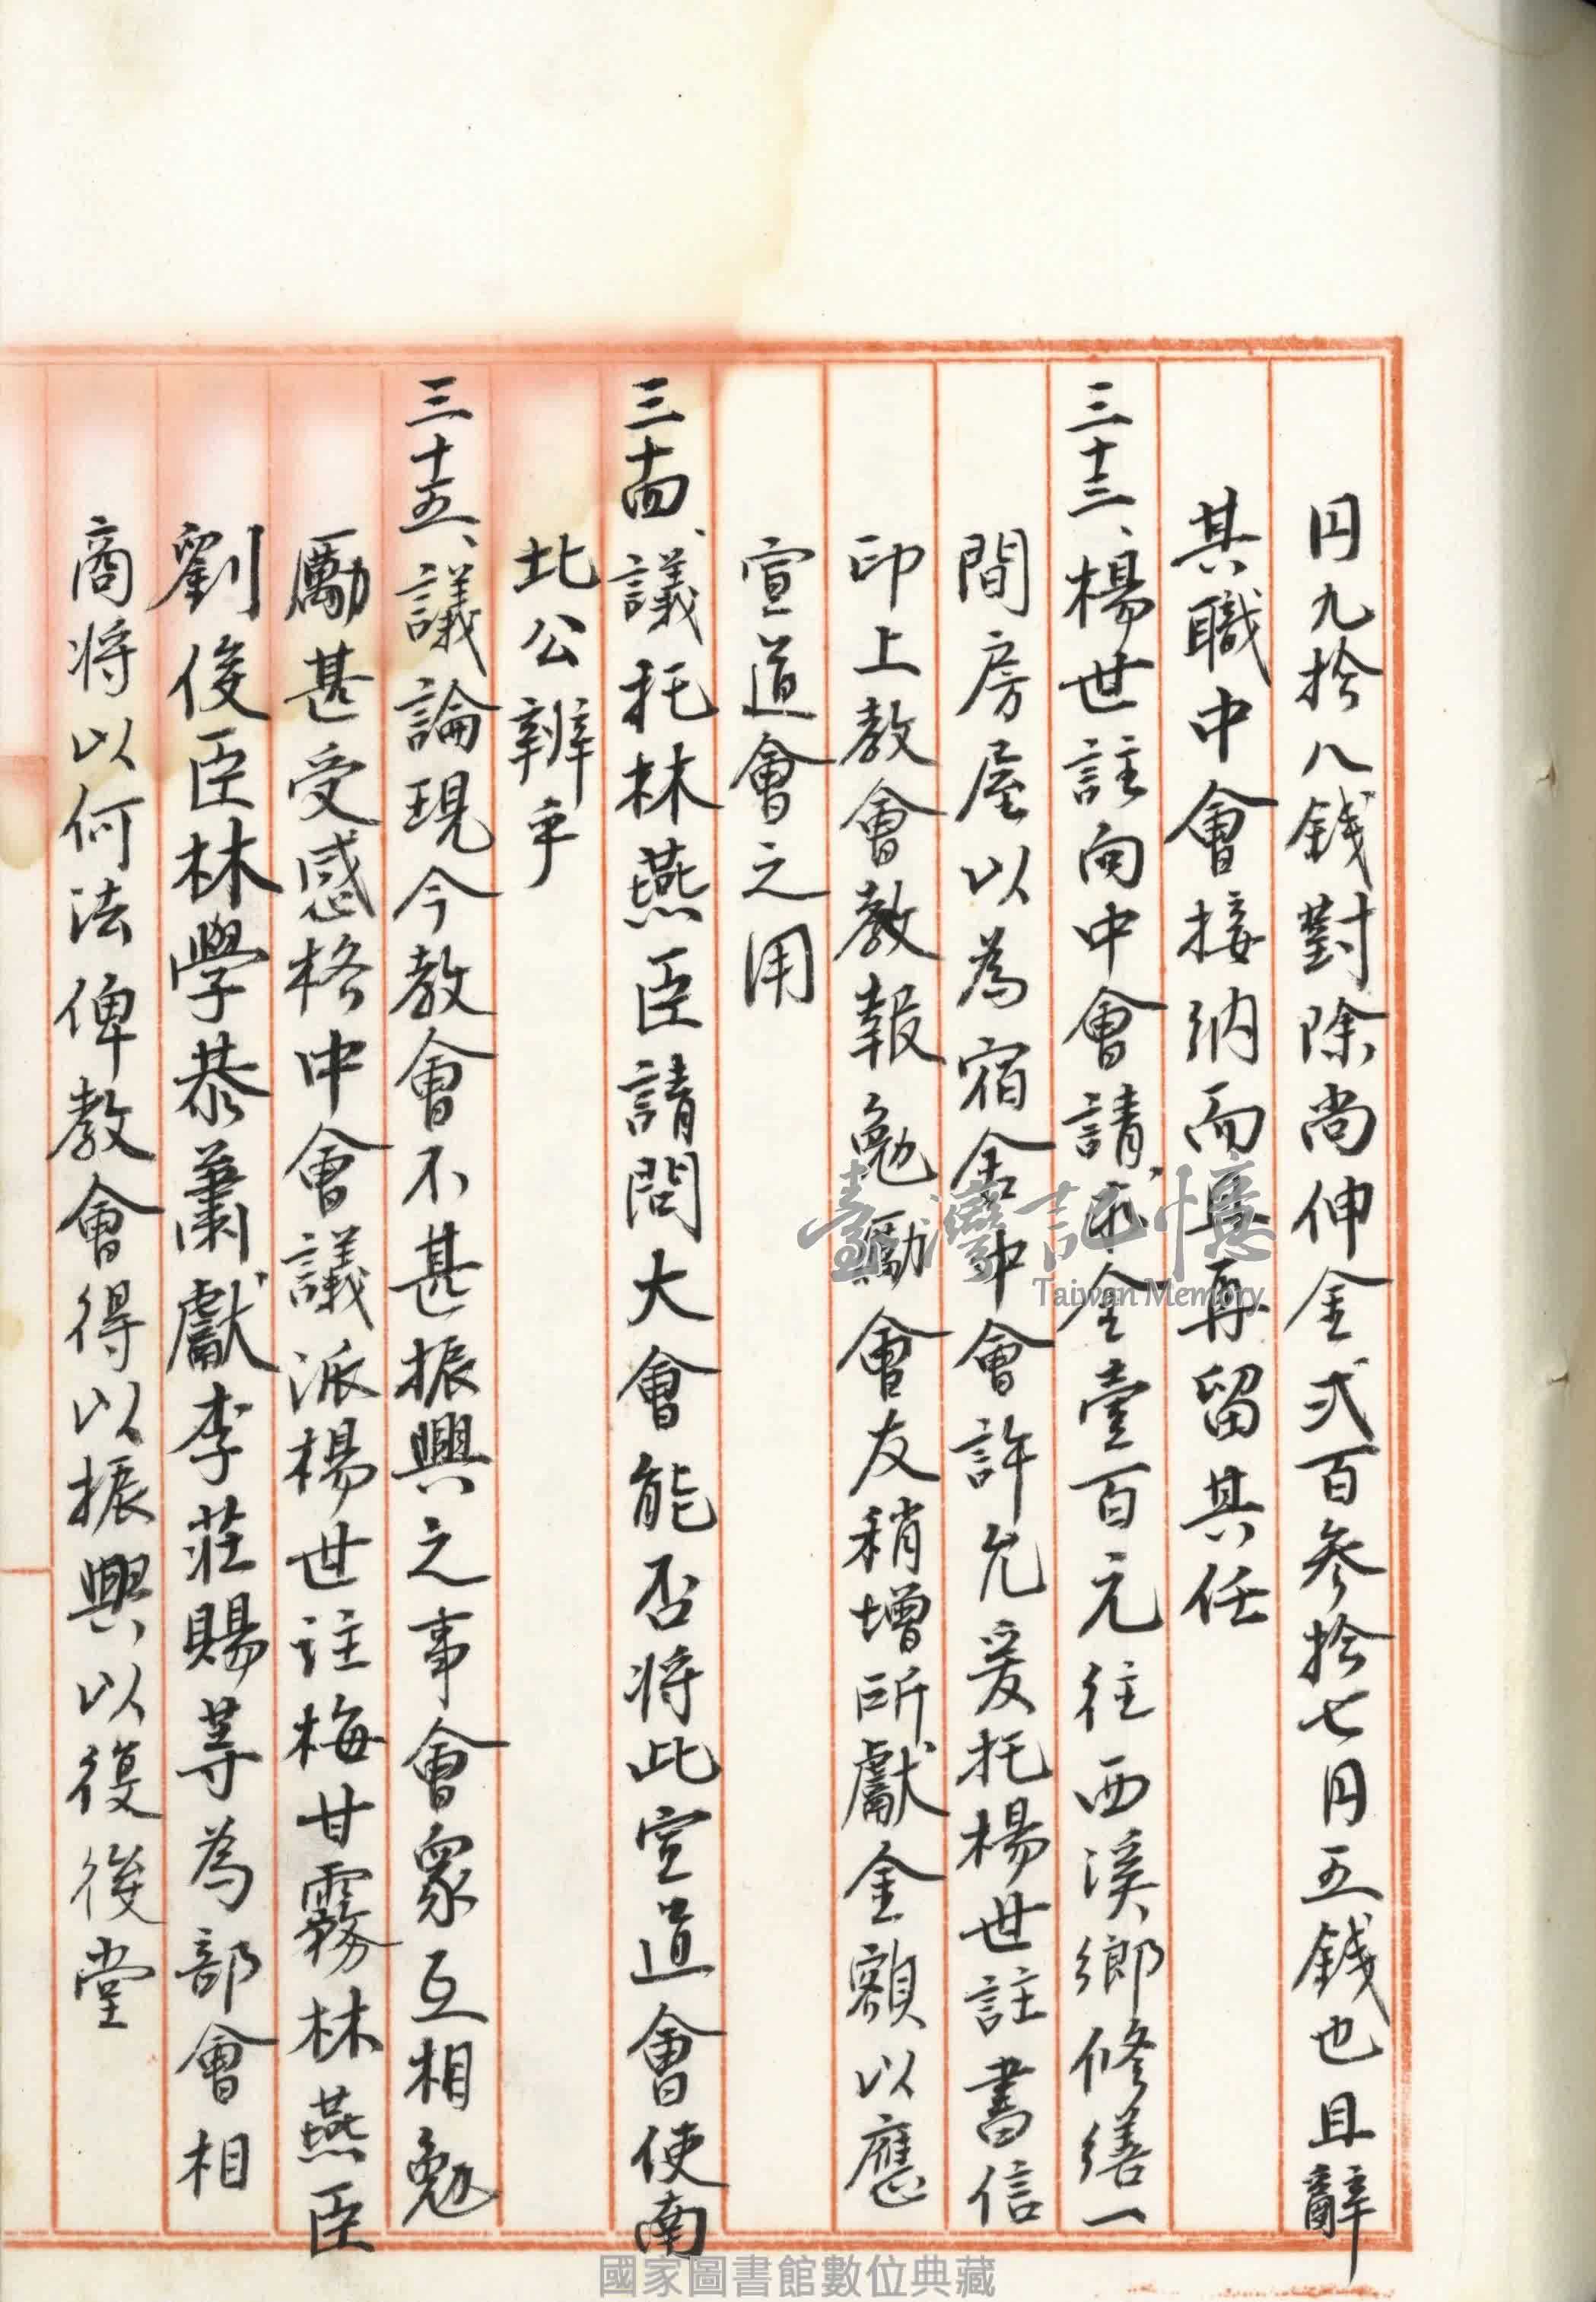 円九拾八錢對除尚伸金弍百參拾七円五錢也且辭
其職中會接納而且再留其任
三十三、楊世註向中會請求金壹百元往西溪鄉修繕一
間房屋以為宿舍中會許允爰托楊世註書信
印上教會教報勉勵會友稍增所獻金額以應
宣道會之用
三十四、議托林燕臣請問大會能否將此宣道會使南
北公辨乎
三十五、議論現今教會不甚振興之事會眾互相勉
勵甚受感格中會議派楊世註梅甘霧林燕臣
劉俊臣林學恭蕭獻李莊賜等為部會相
商將以何法俾教會得以振興以復後堂
臺灣記憶
Taiwan Memory
國家圖書館數位典藏